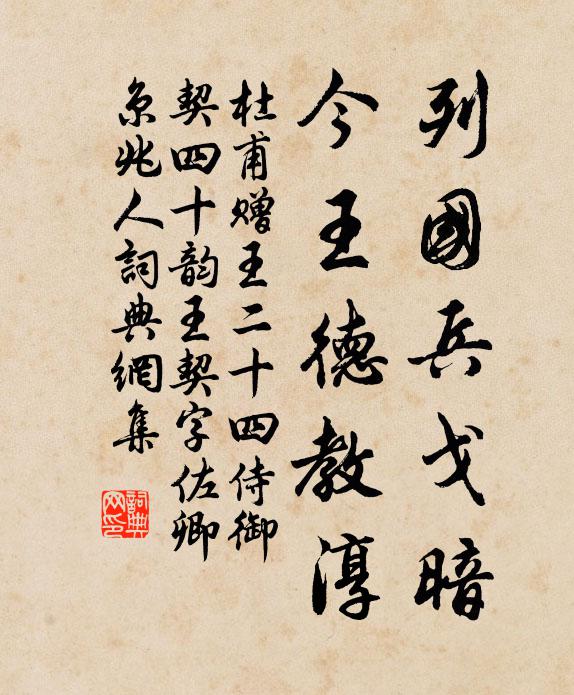 列國兵戈暗
今王德教淳
杜甫贈王二十四侍御
契四十韵王契字佐卿
京兆人詞典網集
詞典网印